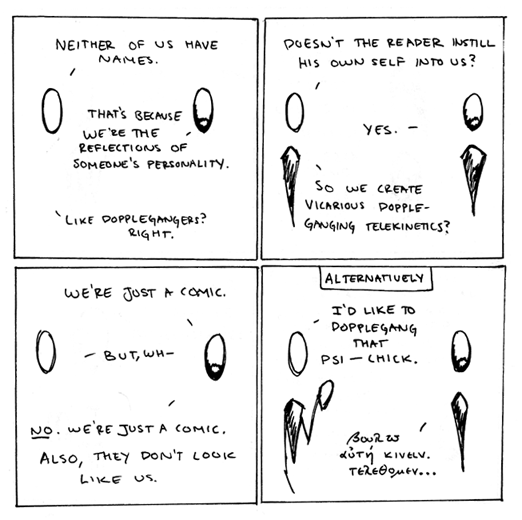 NEITHER OF US HAVE
NAMES.
THAT'S BECAUSE
WE'RE THE
REFLECTIONS OF
SOMEONE'S PERSONALITY.
LIKE DOPPLEGANGERS?
RIGHT.
DOESN'T THE READER INSTILL
HIS OWN SELF INTO US?
YES.
SO WE CREATE
VICARIOUS DOPPLE-
GANGING TELEKINETICS?
WE'RE JUST A COMIC.
BUT, WH-
NO. WE'RE JUST A COMIC.
ALSO, THEY DON'T LOOK
LIKE US.
ALTERNATIVELY
I'D LIKE TO
DOPPLEGANG
THAT
PSI-CHICK.
αὐτή κινεῖν.